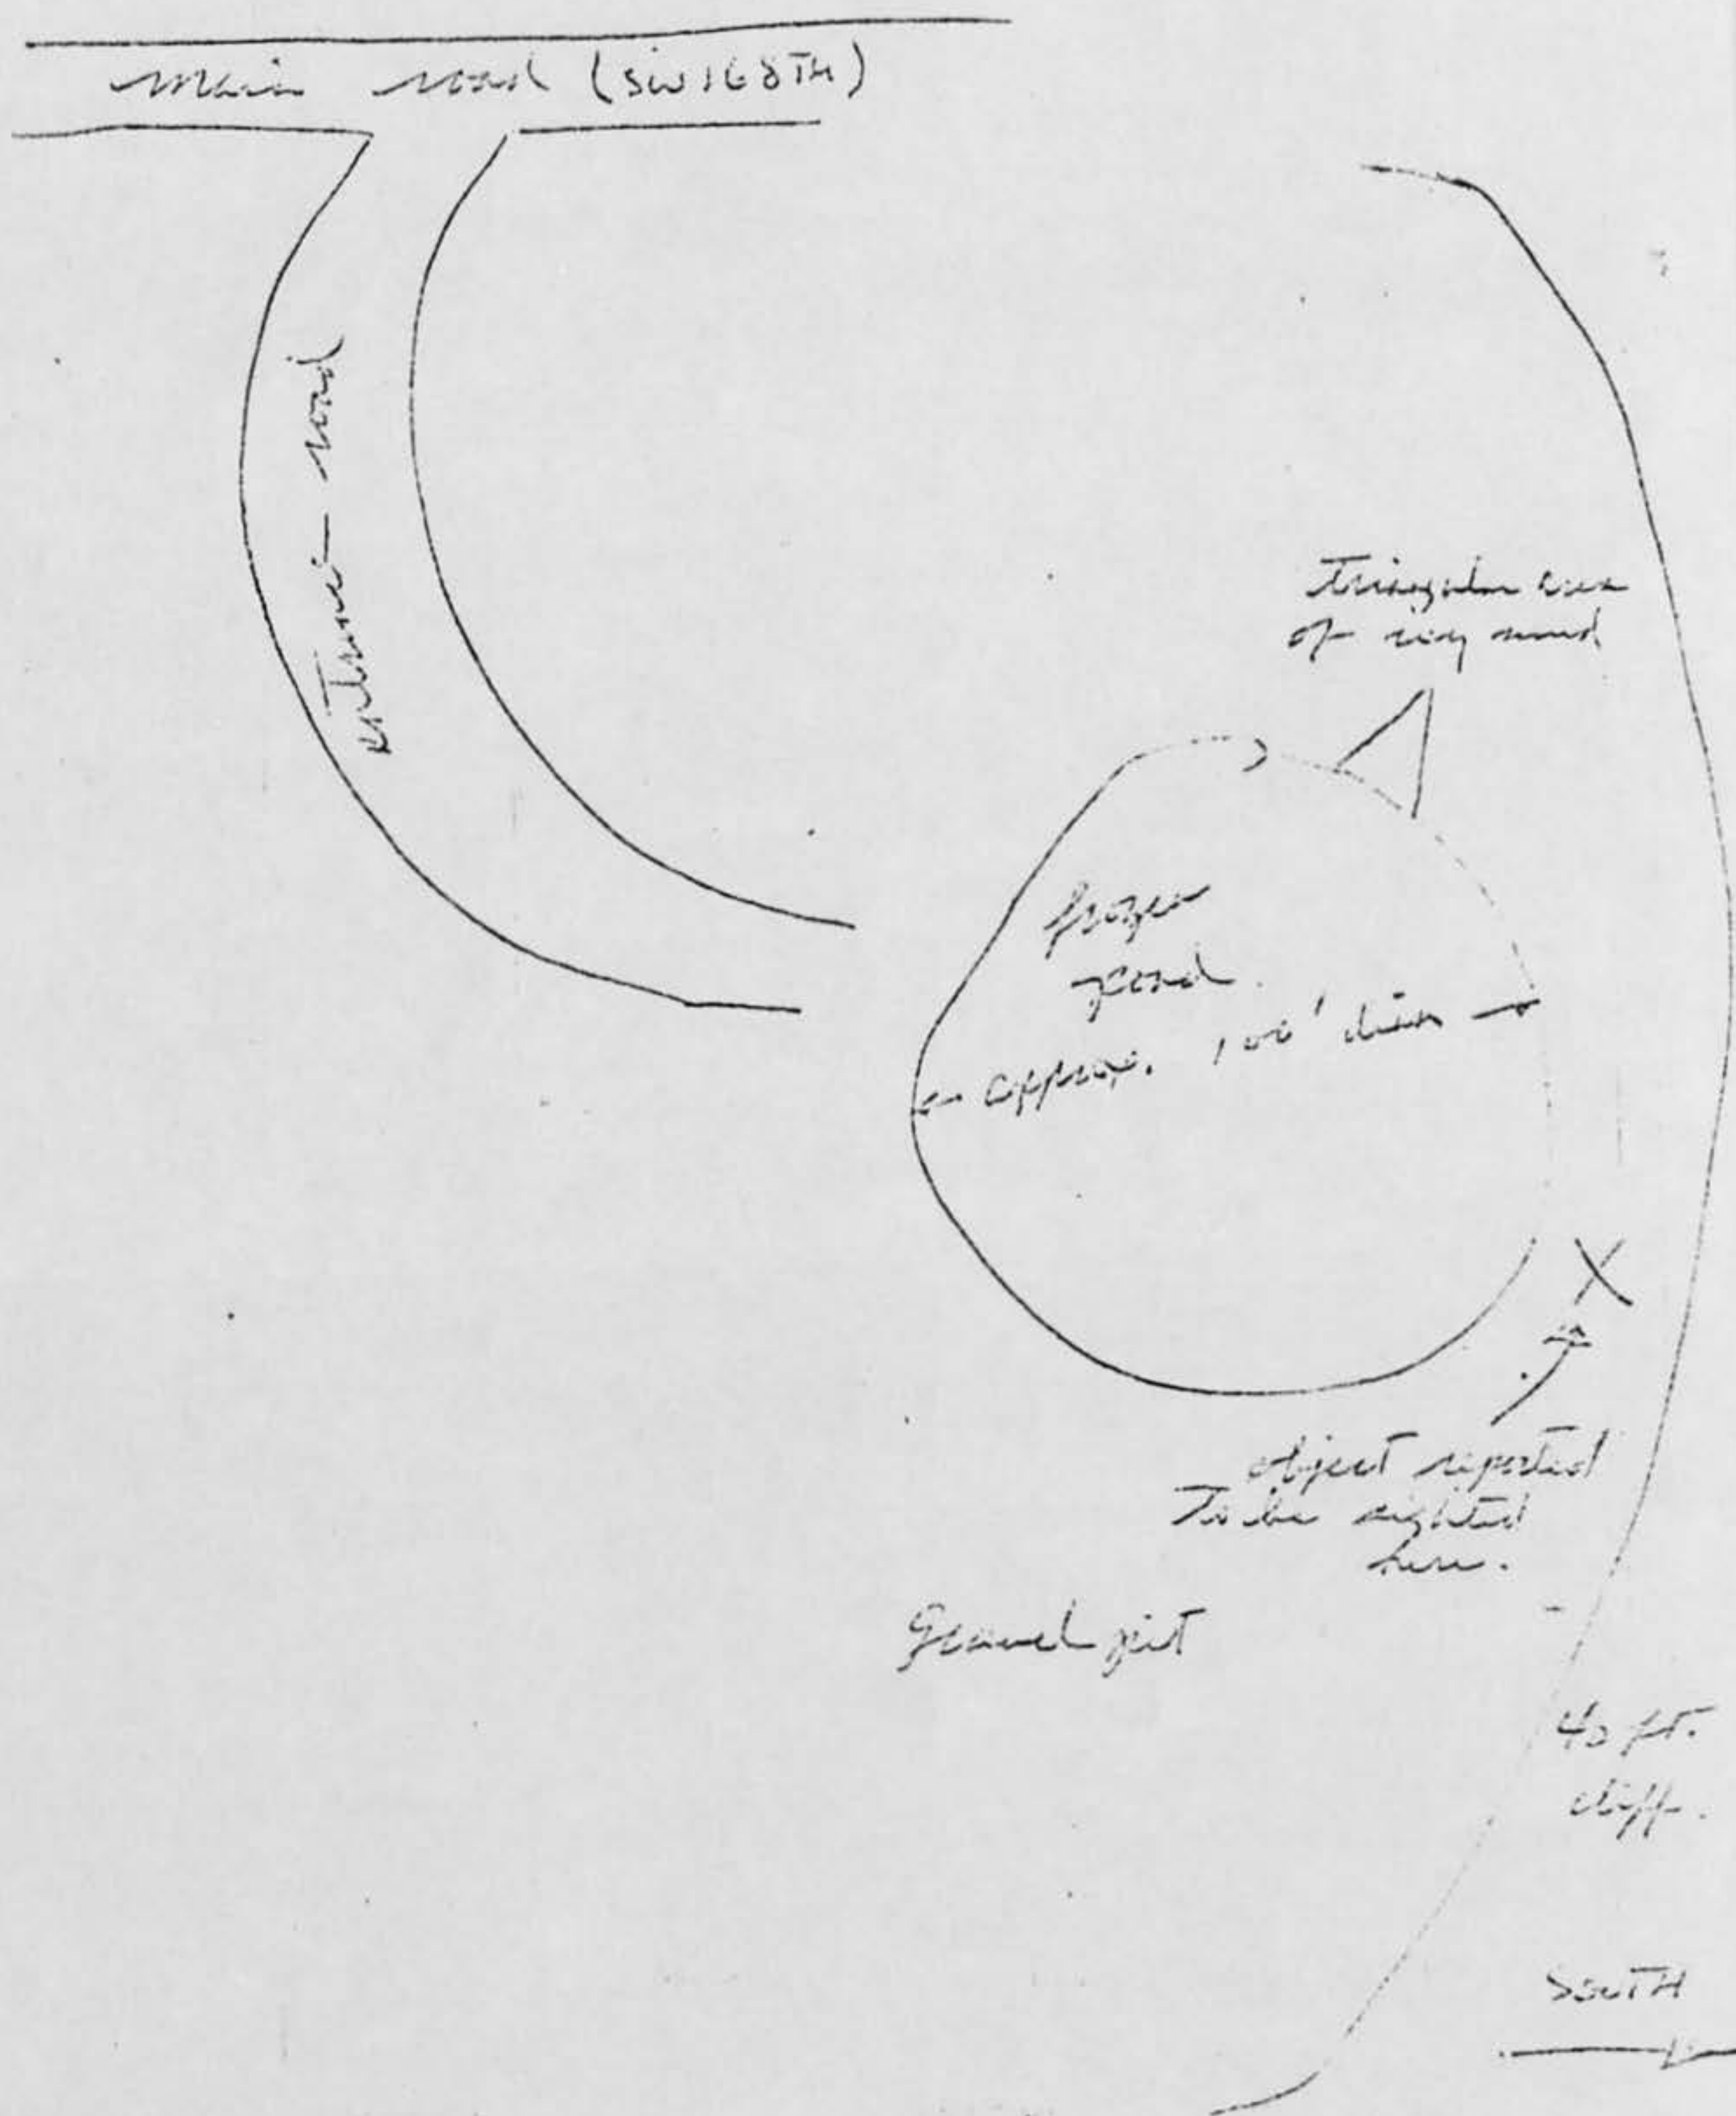 Main road (SW 168TH)
entrance road
Triangular area
of icy mud
frozen
pond.
approx. 100' diam
X
object reported
To be sighted
here.
Gravel pit
40 ft.
cliff.
SOUTH